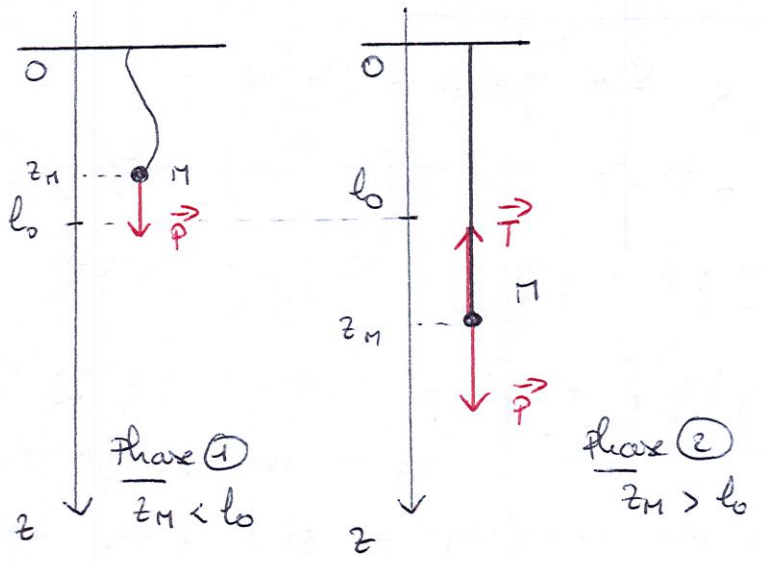 O
z_M
M
l_0
P
Phase ①
z_M < l_0
z
O
l_0
T
M
z_M
P
Phase ②
z_M > l_0
z